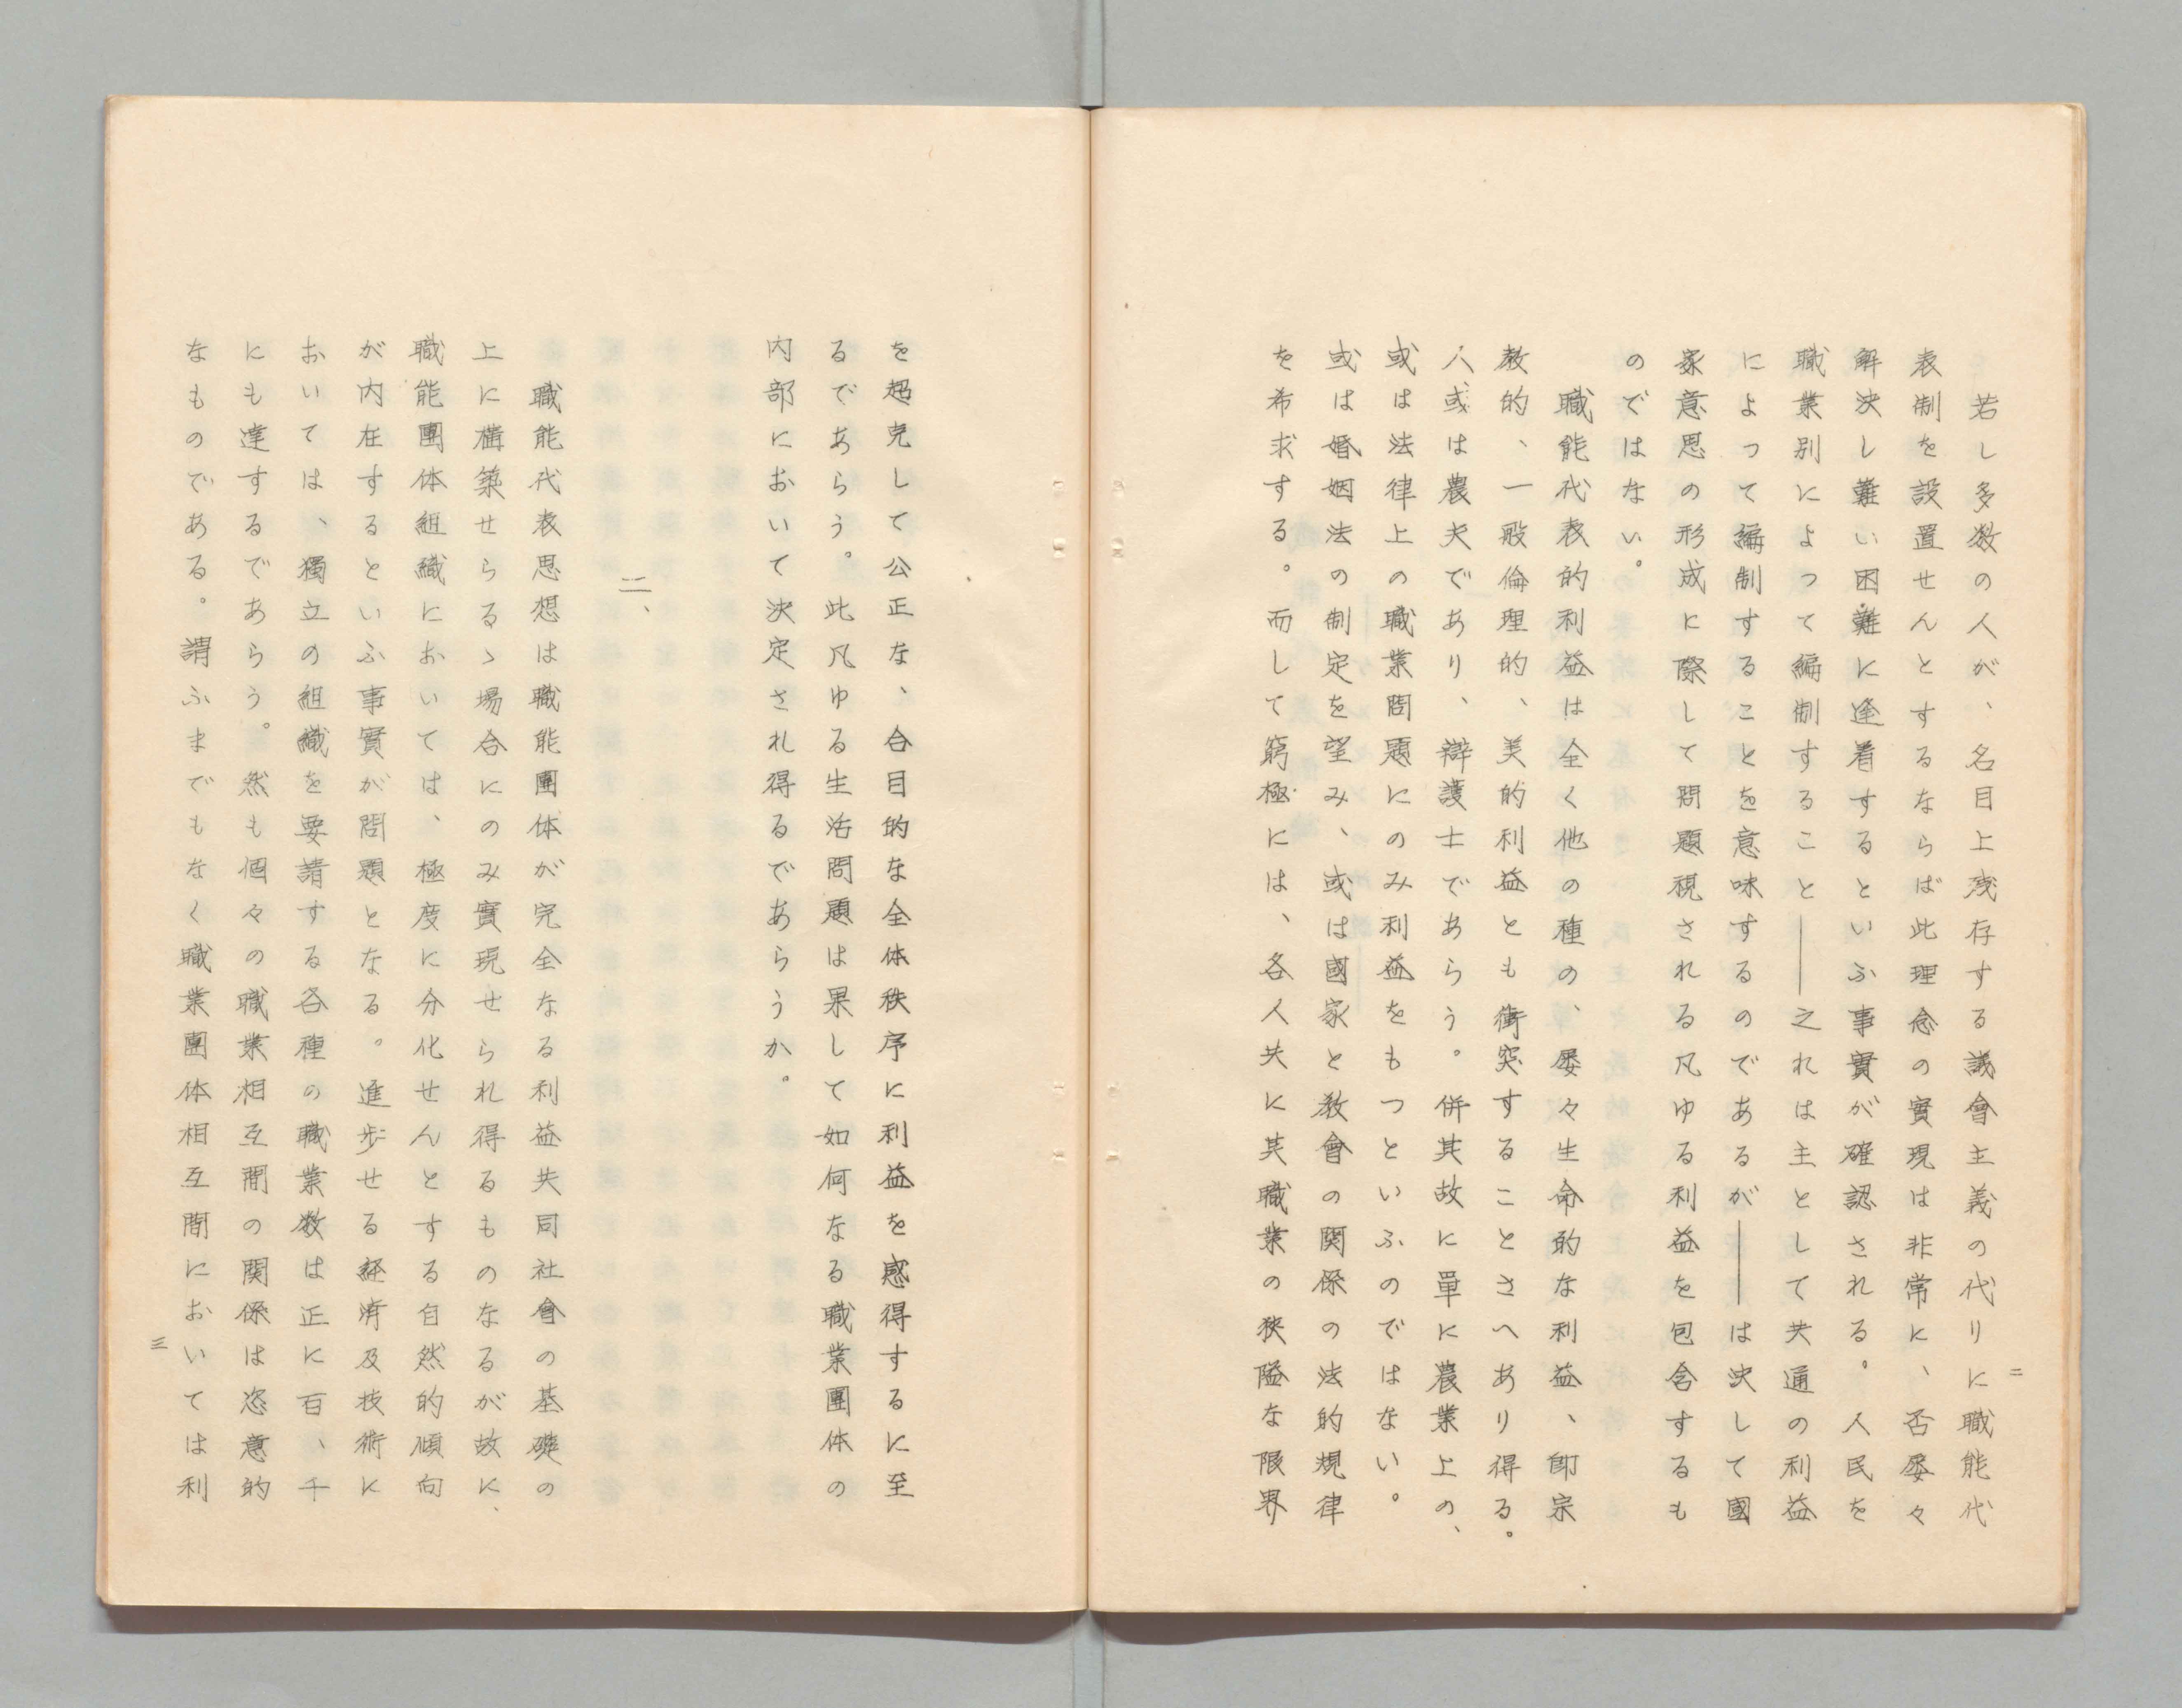 二
若し多数の人が、名目上残存する議會主義の代りに職能代
表制を設置せんとするならば此理念の實現は非常に、否屡々
解決し難い困難に逢着するといふ事實が確認される。人民を
職業別によって編制すること――之れは主として共通の利益
によって編制することを意味するのであるが――は決して國
家意思の形成に際して問題視される凡ゆる利益を包含するも
のではない。
職能代表的利益は全く他の種の、屡々生命的な利益、即宗
教的、一般倫理的、美的利益とも衝突することさへあり得る。
人或は農夫であり、辯護士であらう。併其故に單に農業上の、
或は法律上の職業問題にのみ利益をもつといふのではない。
或は婚姻法の制定を望み、或は國家と教會の関係の法的規律
を希求する。而して窮極には、各人共に其職業の狭隘な限界
を超克して公正な、合目的な全体秩序に利益を感得するに至
るであらう。此凡ゆる生活問題は果して如何なる職業團体の
内部において決定され得るであらうか。
二、
職能代表思想は職能團体が完全なる利益共同社會の基礎の
上に構築せらるゝ場合にのみ實現せられ得るものなるが故に、
職能團体組織においては、極度に分化せんとする自然的傾向
が内在するといふ事實が問題となる。進歩せる経済及技術に
おいては、獨立の組織を要請する各種の職業数は正に百、千
にも達するであらう。然も個々の職業相互間の関係は恣意的
なものである。謂ふまでもなく職業團体相互間においては利
三